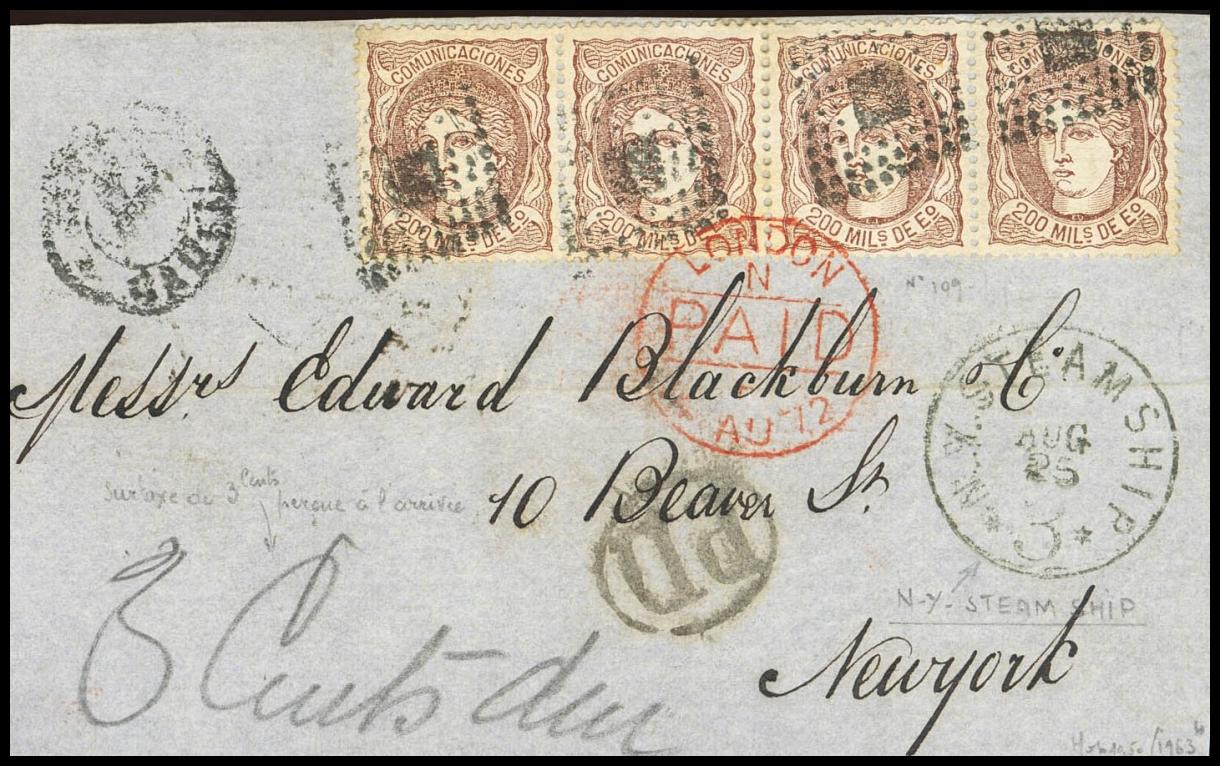 COMUNICACIONES COMUNICACIONES COMUNICACIONES COMUNICACIONES
200 MILS DE Eo 200 MILS DE Eo 200 MILS DE Eo 200 MILS DE Eo
LONDON
N
PAID
AU 12
No 109
Messrs Edward Blackburn & Co
N.Y. STEAMSHIP
AUG
25
3
surtaxe de 3 Cents perçue à l'arrivée
10 Beaver St.
PD
N-Y- STEAM SHIP
3 Cents due
Newyork
/1963